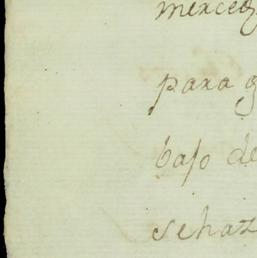 merced
para q
bajo de
se haz